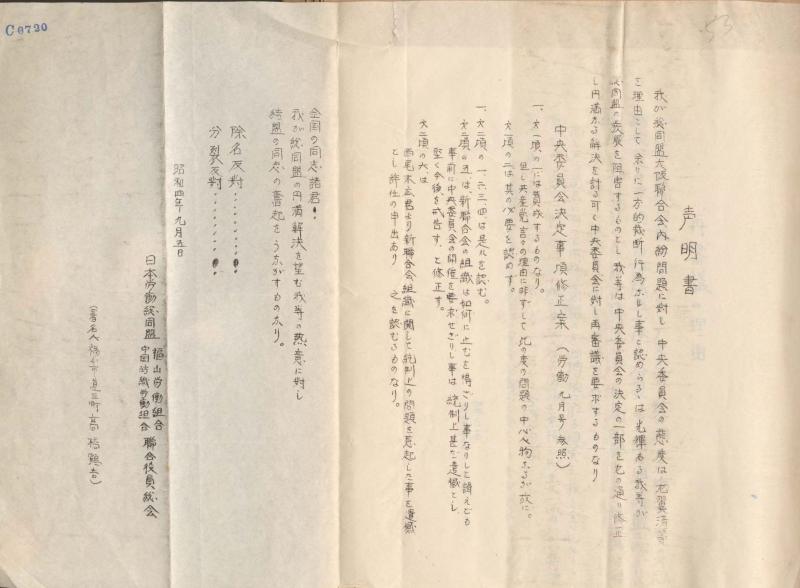 C0720
53
声明書
我が総同盟大阪聯合会内紛問題に対し中央委員会の態度は左翼清算
を理由として余りに一方的裁断行為ありし事に認めらるゝは光輝ある我等が
総同盟の発展を阻害するものとし我等は中央委員会の決定の一部を左の通り修正
し円満なる解決を計る可く中央委員会に対し再審議を要求するものなり
中央委員会決定事項修正案(労働九月号参照)
一、大一項の一には賛成するものなり。
但し共産党云々の理由に非ずして此の度の問題の中心人物なるが故に。
大一項の二は其の必要を認めず。
一、大二項の一二三四は是れを認む。
大二項の五は、新聯合会の組織は如何に止むを得ざりし事なりしと謂えども
事前に中央委員会の開催を要求せざりし事は統制上甚だ遺憾とし
堅く今後を戒告す、と修正す。
大二項の六は
西尾末広君より新聯合会組織に関して統制上の問題を惹起した事を遺憾
とし辞任の申出あり 之を認むるものなり。
全国の同志諸君!
我が総同盟の円満解決を望む我等の熱意に対し
総同盟の同志の奮起をうながすものなり。
除名反対・・・・・・・・!
分裂反対・・・・・・・・!
昭和四年九月五日
日本労働総同盟 福山労働組合
中国紡織労働組合 聯合役員総会
(署名人 福山市道三町 高橋鶴吉)